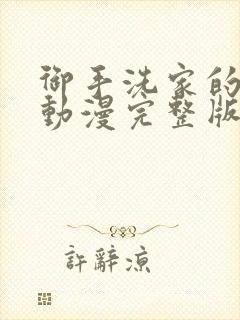 御手洗家的
動漫完整版
許辭涼